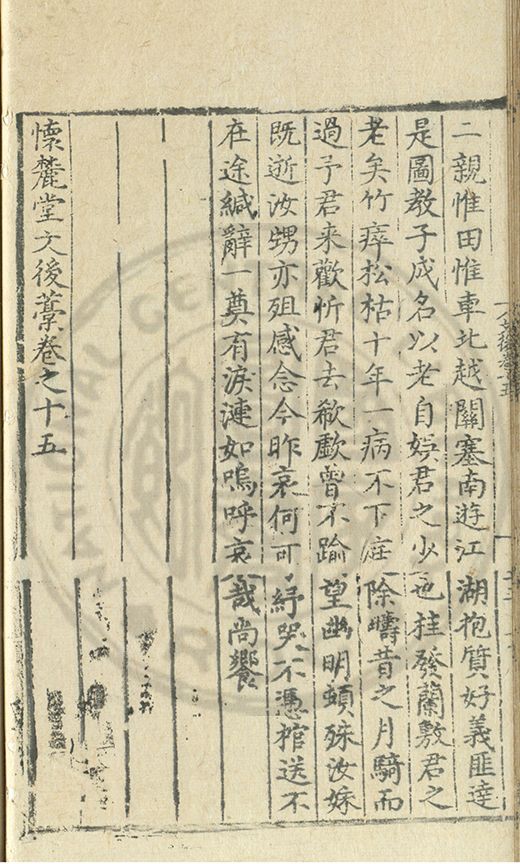 二親惟田惟車北越關塞南遊江湖抱質好義匪達
是圖教子成名以老自娛君之少也桂發蘭敷君之
老矣竹瘁松枯十年一病不下庭除疇昔之月騎而
過予君來歡忻君去欷歔曾不踰望幽明頓殊汝嫁
既逝汝甥亦殂感念今昨哀何可紓哭不憑棺送不
在途緘辭一奠有淚漣如嗚呼哀哉尚饗
懷麓堂文後藁卷之十五